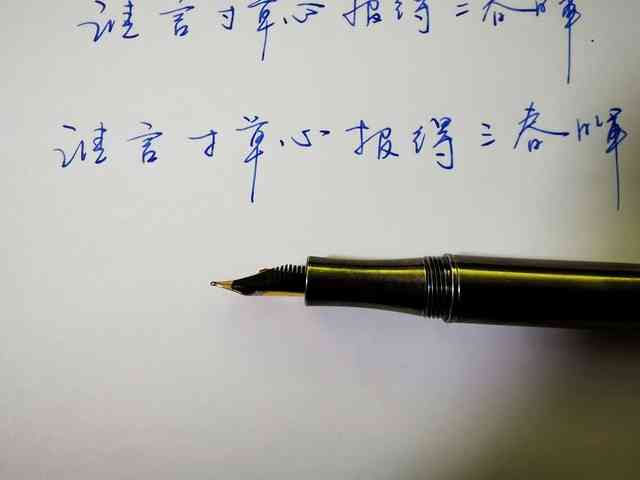 谁言寸草心报得三春晖.
谁言寸草心报得三春晖